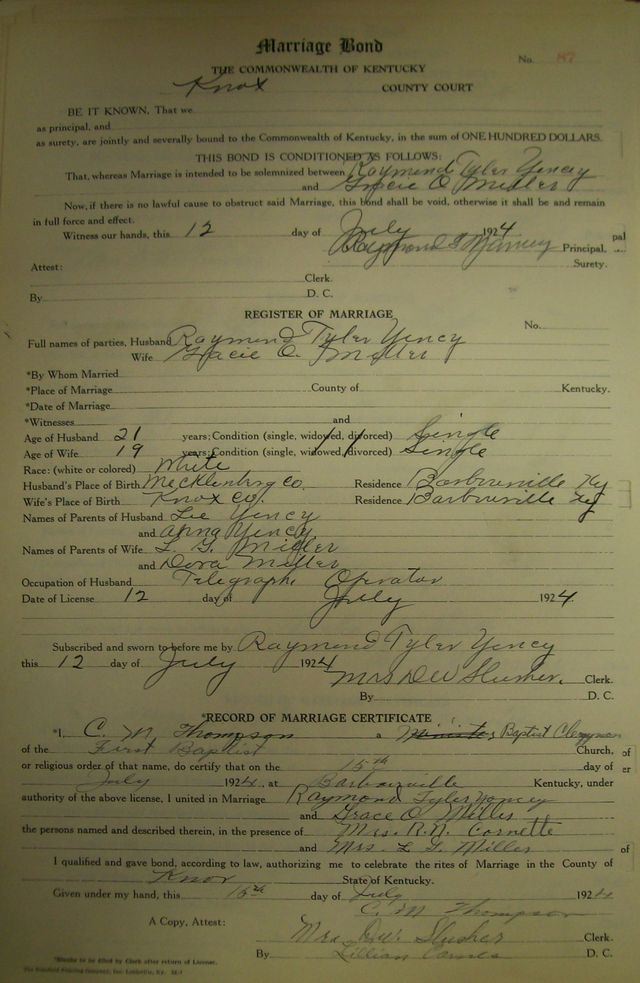 Marriage Bond
No. 187
THE COMMONWEALTH OF KENTUCKY
Knox COUNTY COURT
BE IT KNOWN, That we
as principal, and
as surety, are jointly and severally bound to the Commonwealth of Kentucky, in the sum of ONE HUNDRED DOLLARS.
THIS BOND IS CONDITIONED AS FOLLOWS:
That, whereas Marriage is intended to be solemnized between Raymond Tyler Yencey
and Gracie O Miller
Now, if there is no lawful cause to obstruct said Marriage, this bond shall be void, otherwise it shall be and remain
in full force and effect.
Witness our hands, this 12 day of July 1924
Raymond T Principal.
pal
Attest: Surety.
Clerk.
By D. C.
REGISTER OF MARRIAGE
No.
Full names of parties, Husband Raymond Tyler Yency
Wife Gracie O. Miller
*By Whom Married
*Place of Marriage County of Kentucky.
*Date of Marriage
*Witnesses and
Age of Husband 21 years; Condition (single, widowed, divorced) Single
Age of Wife 19 years; Condition (single, widowed, divorced) Single
Race: (white or colored) White
Husband's Place of Birth Mecklenburg Co. Residence Barbourville Ky
Wife's Place of Birth Knox Co. Residence Barbourville Ky
Names of Parents of Husband Lee Yency
and Anna Yency
Names of Parents of Wife L. G. Miller
and Dora Miller
Occupation of Husband Telegraph Operator
Date of License 12 day of July 1924
Subscribed and sworn to before me by Raymond Tyler Yency
this 12 day of July 1924
Mrs D W Slusher. Clerk.
By D. C.
*RECORD OF MARRIAGE CERTIFICATE
*I, C. M. Thompson a Minister Baptist Clergyman
of the First Baptist Church,
or religious order of that name, do certify that on the 15th day of
July 1924, at Barbourville Kentucky, under
authority of the above license, I united in Marriage Raymond Tyler Yoncy
and Grace O. Miller
the persons named and described therein, in the presence of Mrs. R. N. Cornette
and Mrs. L. G. Miller
I qualified and gave bond, according to law, authorizing me to celebrate the rites of Marriage in the County of
Knox State of Kentucky.
Given under my hand, this 15th day of July 1924
C. M Thompson
A Copy, Attest: Mrs D. W. Slusher Clerk.
By Lillian D. C.
*Blanks to be filled by Clerk after return of License.